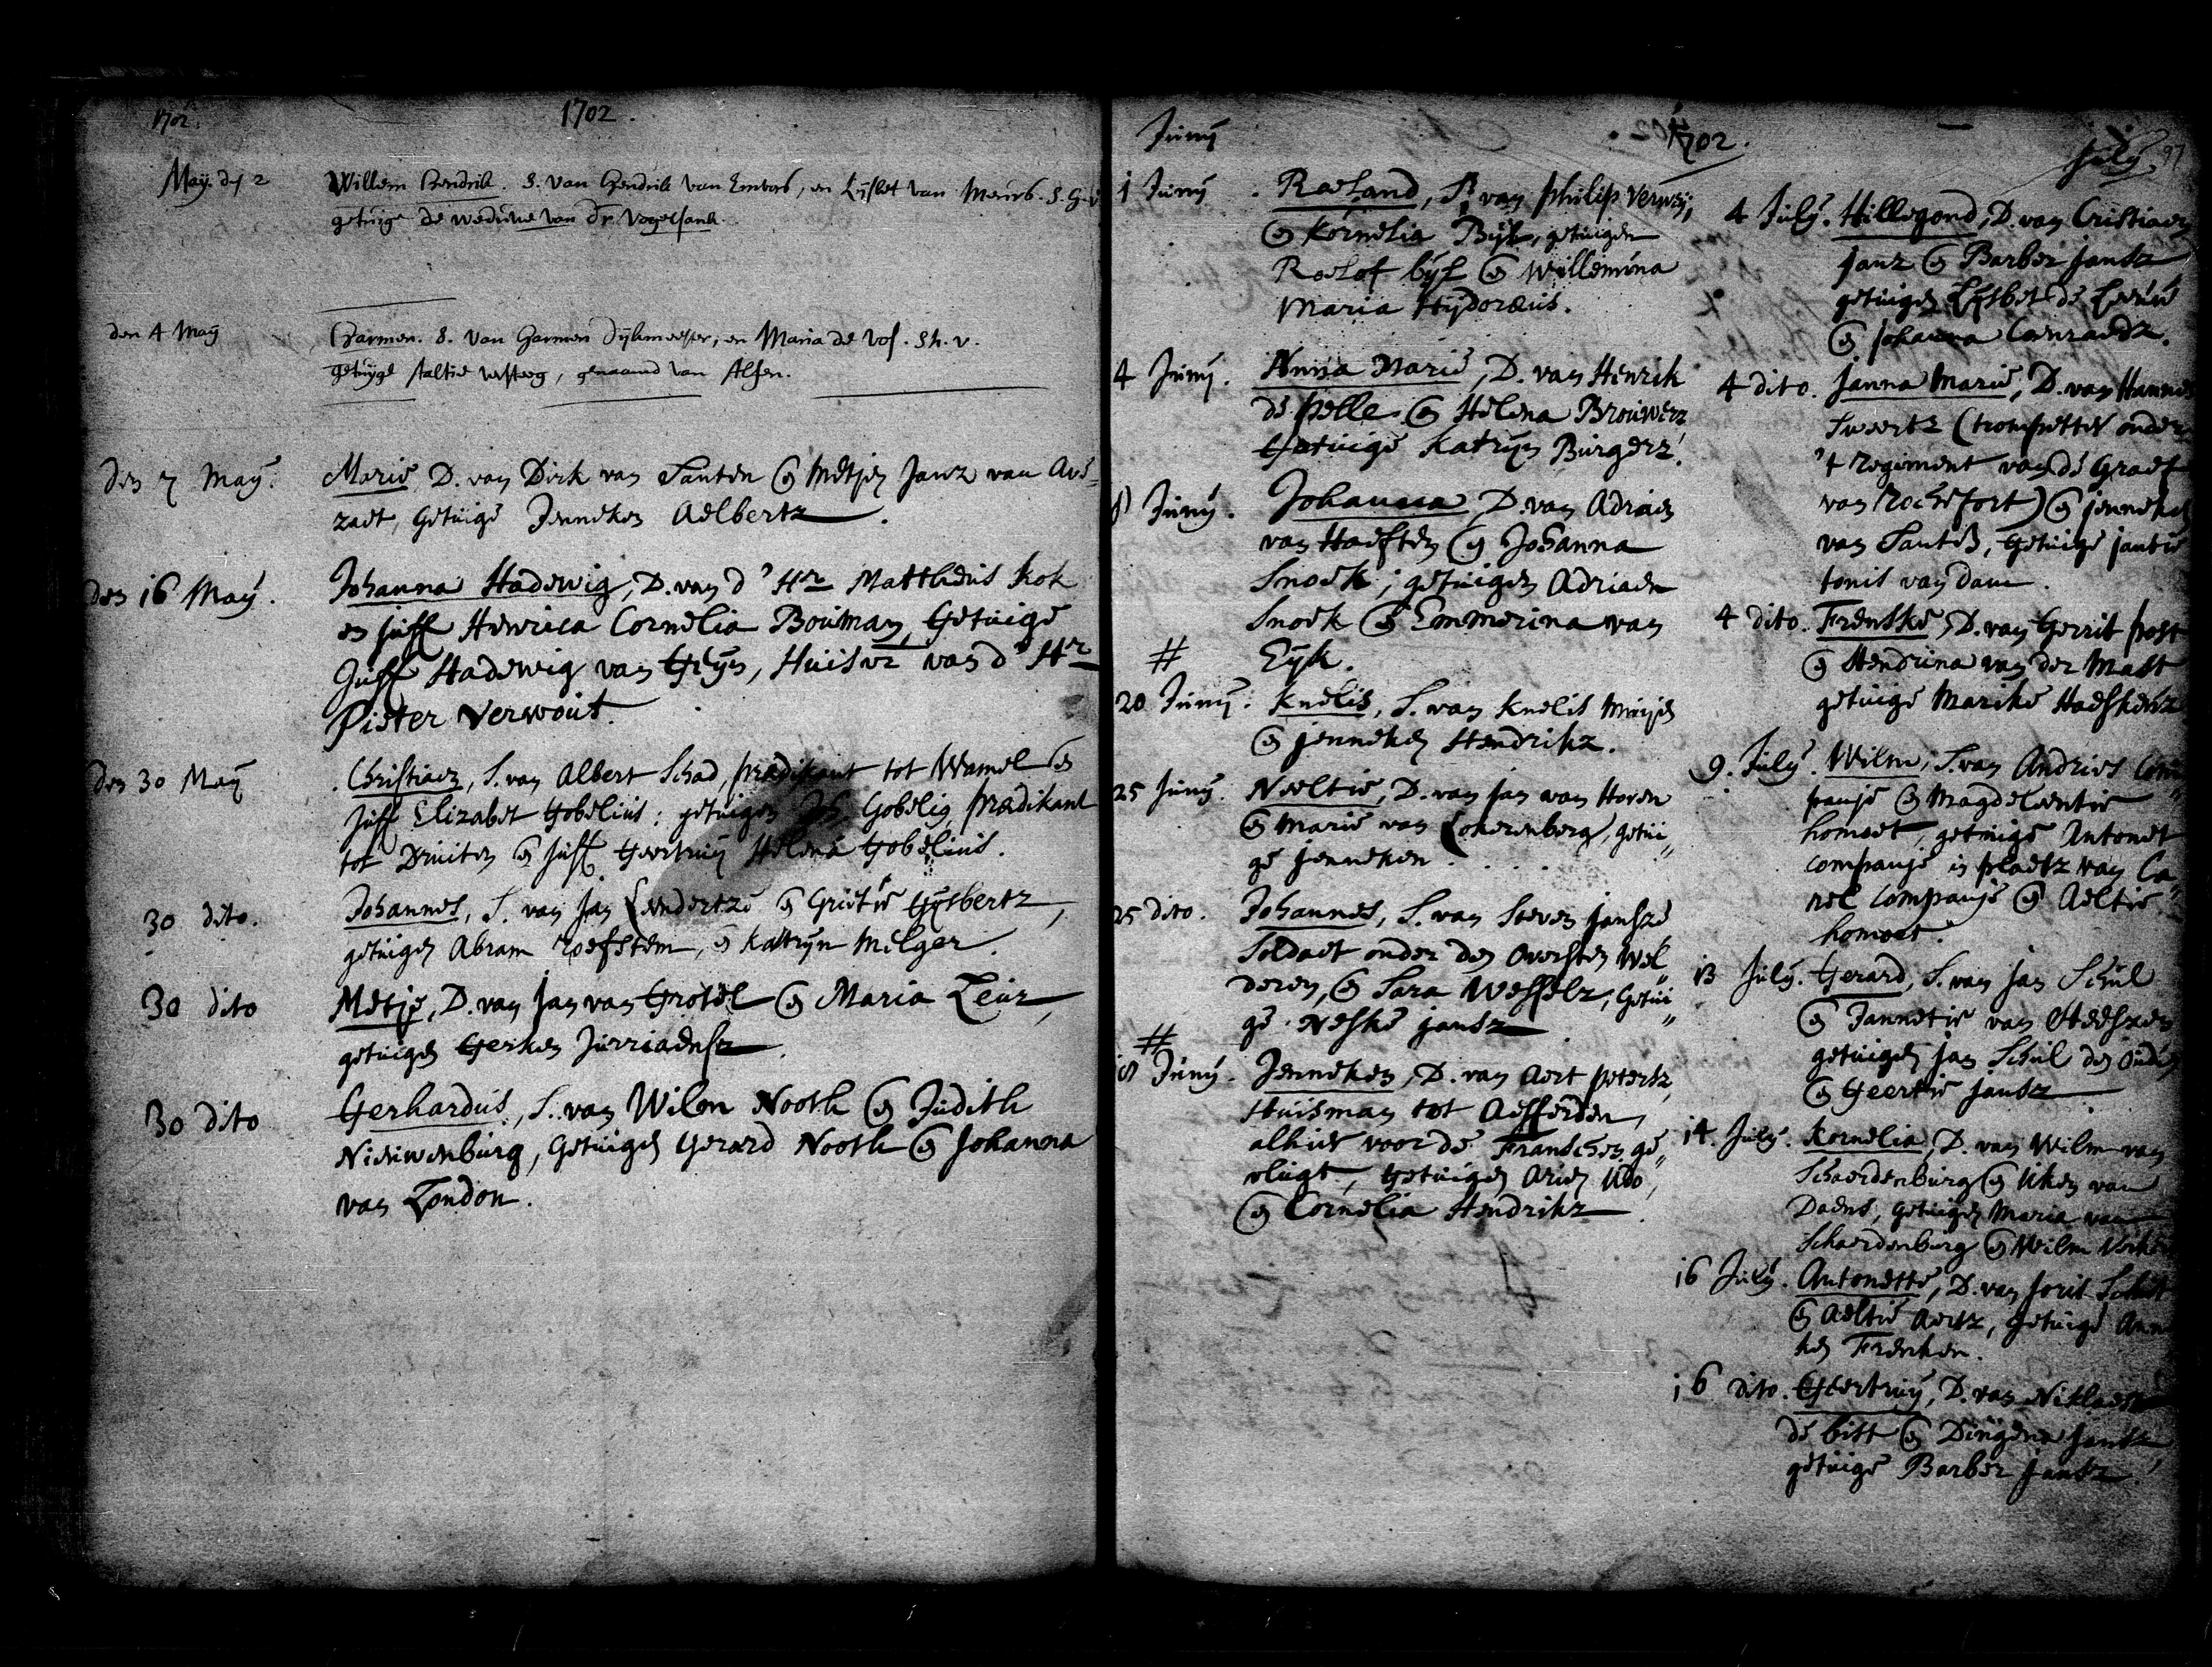 1702.
1702.
May. d. 2 Willem Hendrik. S. van Hendrik van Embors, en Lijsbet van Meurs. S. H. v
getuige de weduwe van Dr. Vogelsank.
den 4 May Harmen. S. van Harmen Dijkmeester, en Maria de Vos. S. h. v.
getuyge Aaltie versteeg, genaamd van Alfen.
den 7 May. Marie, D. van Dirk van Santen en Metjen Janz van Ave-
zaet, Getuige Jenneken Aelbertz.
den 16 May. Johanna Hadewig, D. van d' Hr Mattheus Kok
en juff Henrica Cornelia Bouman, Getuige
Juff Hadewig van Gryn, Huisvr van d' Hr
Pieter Verwout.
den 30 May Christiaen, S. van Albert Schad, prædikant tot Wamel en
Juff Elizabet Gobelius; getuigen Gobelig prædikant
tot Druiten en Juff Geertruy Helena Gobelius.
30 dito. Johannes, S. van Jan Lendertze en Grietie Gysbertz,
getuigen Abram roefstem, en Katryn Milger.
30 dito Metje, D. van Jan van Grotel en Maria Leur,
getuigen Gerken Jurriaensz.
30 dito Gerhardus, S. van Wilem Nooth en Judith
Nieuwenburg, Getuigen Gerard Nooth en Johanna
van London.
Juny
1702.
1 Juny. Roeland, S. van Philip Verweij,
en Kornelia Byl, getuigen
Roelof byl en Willemina
Maria Hydoræus.
4 Juny. Anna Marie, D. van Henrik
de pelle en Helena Brouwerz
Getuige Katryn Burgerz.
Juny. Johanna, D. van Adriaen
van Haeften en Johanna
Snoek; getuigen Adriaen
Snoek en Emmerina van
# Eyk.
20 Juny. Knelis, S. van Knelis
en jenneken Hendrikz.
25 Juny. Neeltie, D. van Jan van Hoven
en Marie van Lokerenberg, getui-
ge Jenneken . . . .
25 dito. Johannes, S. van Steven Jansze
Soldaet onder den Oversten Wel-
deren, en Sara Wesselz, Getui-
ge Neske jansz
#
Juny. Jenneken, D. van Aert petersz,
Huisman tot Aefferden,
alhier voor de Franschen ge-
vlugt, Getuigen Arien Udo,
en Cornelia Hendrikz
July 97
4 July. Hillegond, D. van Cristiaen
Janz en Barber Jansz
getuigen Lysbet de Leeuw
en Johanna Coenraedz.
4 dito. Janna Marie, D. van Hannes
Sweertz (trompetter onder
't regiment van de Graef
van Rochefort) en jenneken
van Santen, Getuige Jantie
tonis van Dam.
4 dito. Frenske, D. van Gerrit post
en Hendrina van der Mast
getuige Marike Haeskenz
9. July. Wilm, S. van Andries Com-
panje en Magdeleentie
homoet, getuige Antonet
Companje in plaetz van Ca-
rel Companje en Aeltie
homoet.
13 July. Gerard, S. van Jan Schul
en Jannetie van Heeszen
getuigen Jan Schul den ouden
en Geertie Jansz.
14. July. Kornelia, D. van Wilm van
Schaerdenburg en Uken van
Daens, getuigen Maria van
Schaerdenburg en Wilm
16 July. Antonette, D. van Joris
en Aeltie Aertz, getuige Anne-
ken Frenken.
16 dito. Geertruy, D. van Niklaes
de bitt en Dingena Jansz,
getuige Barber Jansz